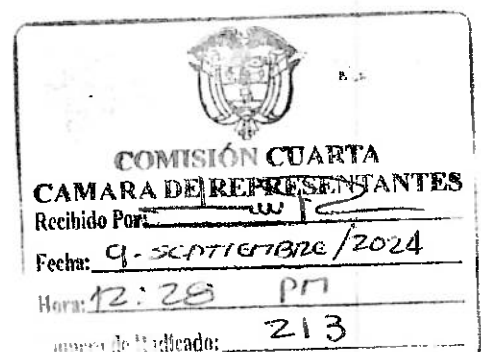 COMISIÓN CUARTA
CAMARA DE REPRESENTANTES
Recibido Por:
Fecha: 9-SEPTIEMBRE/2024
Hora: 12:28 PM
de Radicado: 213